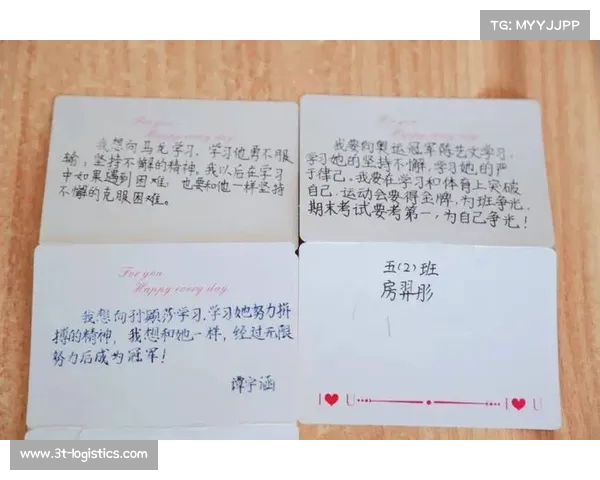 TG: MYYJJPP
For you
Happy every day
我想向马龙学习，学习他勇不服
输，坚持不懈的精神，我以后在学习
中如果遇到困难，也要和他一样坚持
不懈的克服困难。
For you
Happy every day
我要向奥运冠军陈艺文学习，
学习她的坚持不懈，学习她的严
于律己。我要在学习和体育上突破
自己，运动会要得金牌，为班争光。
期末考试要考第一，为自己争光！
For you
Happy every day.
我想向孙颖莎学习，学习她努力拼
搏的精神，我想和她一样，经过无限
努力后成为冠军！
谭宇涵
五(2)班
房羿彤
I ❤ U
I ❤ U
www.3t-logistics.com